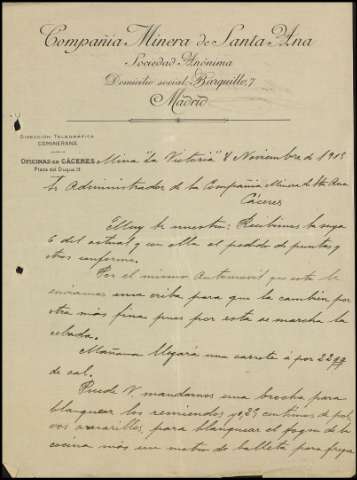 Compañia Minera de Santa Ana
Sociedad Anónima
Domicilio social: Barquillo, 7
Madrid
DIRECCIÓN TELEGRÁFICA
COMINERANA
OFICINAS EN CÁCERES
Plaza del Duque 11
Mina "La Victoria" 8 Noviembre de 191
Sr Administrador de la Compañia Minera de Sta Ana
Cáceres
Muy sr nuestro: Recibimos la suya
6 del actual y con ella el pedido de puntas y
otros conforme.
Por el mismo Automovil que este le
enviamos una criba para que la cambien por
otra más fina pues por esta se marcha la
cebada.
Mañana llegará una carreta á por 22 qq
de cal.
Puede V. mandarnos una brocha para
blanquear los remiendos y 0,25 centimos de pol-
vos amarillos para blanquear el fogon de la
cocina más un metro de balleta para frega